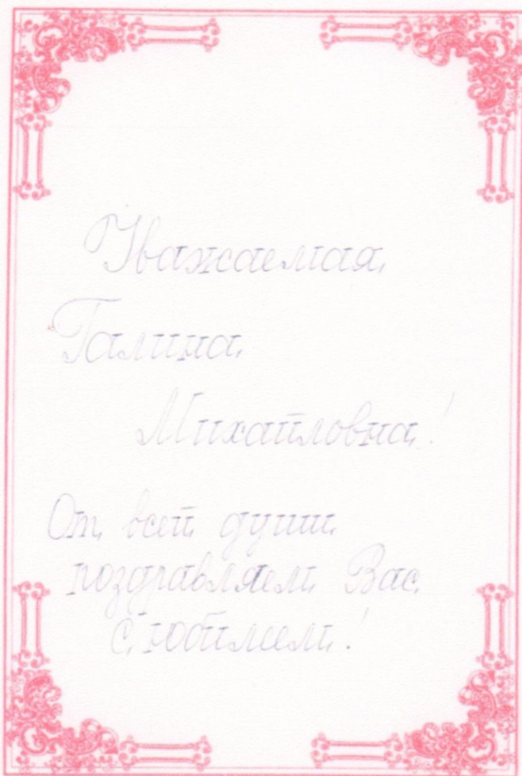 Уважаемая
Галина
Михайловна!
От всей души
поздравляем Вас
с юбилеем!